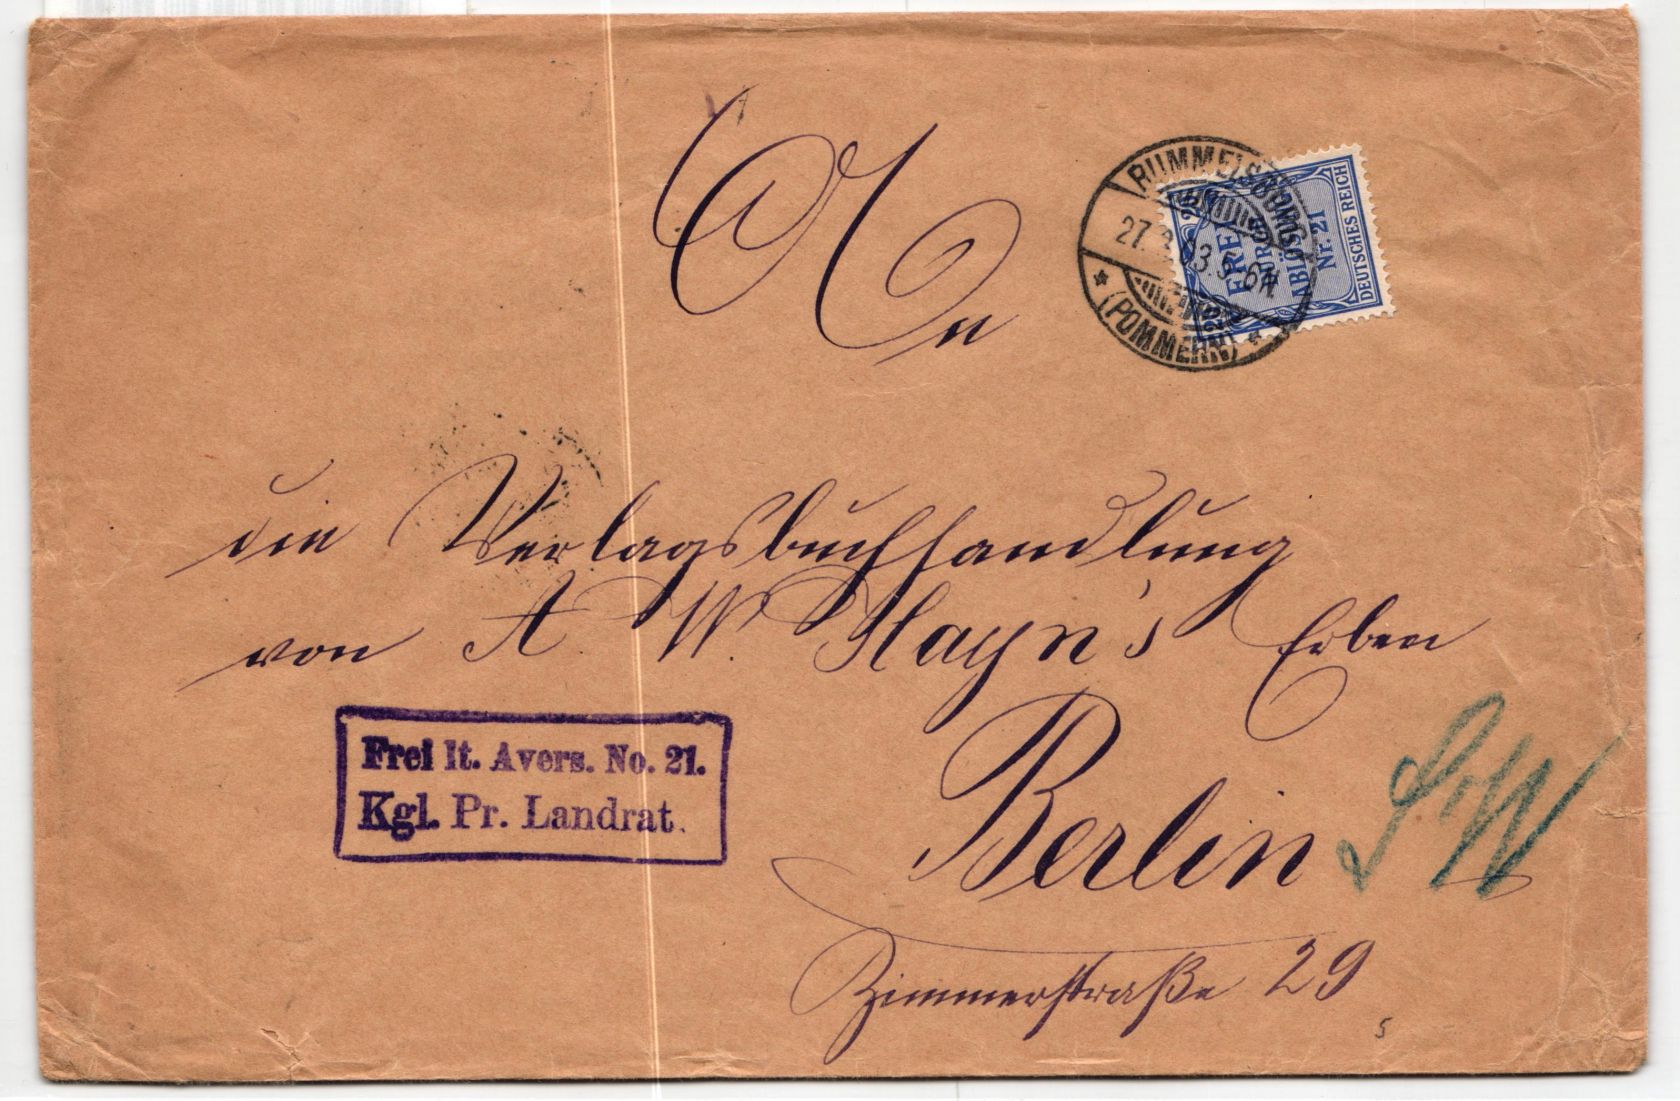 An
RUMMELSBURG
27. 3. 03. 5-6N.
(POMMERN)
FREI DURCH
ABLÖSUNG
Nr. 21
DEUTSCHES REICH
die Verlagsbuchhandlung
von A. W. Hayn's Erben
Frei lt. Avers. No. 21.
Kgl. Pr. Landrat.
Berlin SW
Zimmerstraße 29
5